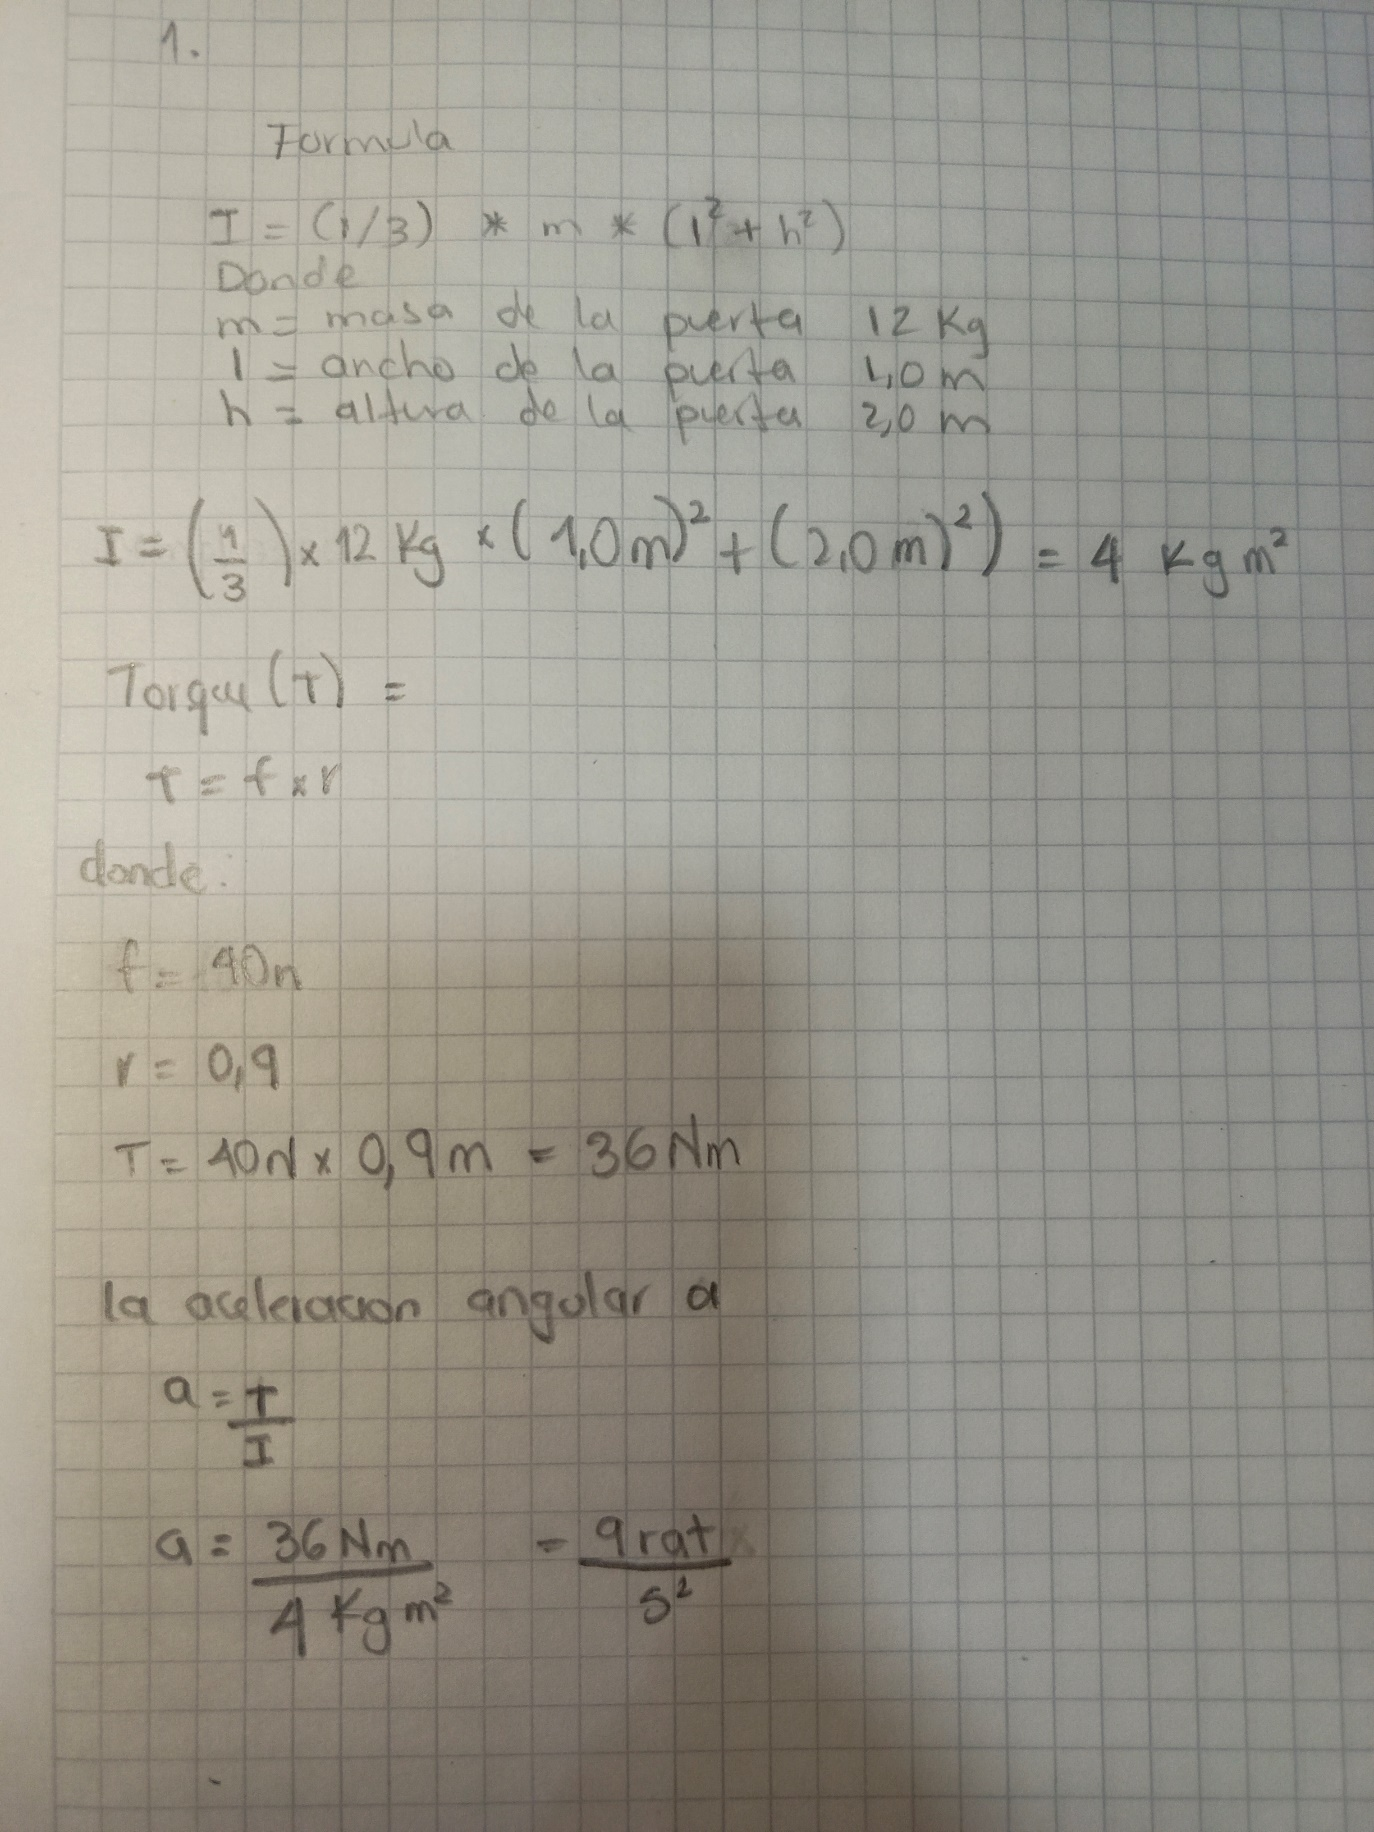 1.
Formula
I = (1/3) * m * (l² + h²)
Donde
m = masa de la puerta 12 Kg
l = ancho de la puerta 1,0 m
h = altura de la puerta 2,0 m
I = (1/3) x 12 Kg x (1,0m)² + (2,0m)²) = 4 Kg m²
Torque (T) =
T = f x r
donde:
f = 40n
r = 0,9
T = 40N x 0,9m = 36Nm
la aceleracion angular a
a = T/I
a = 36 Nm / 4 Kg m² = 9 rat / s²